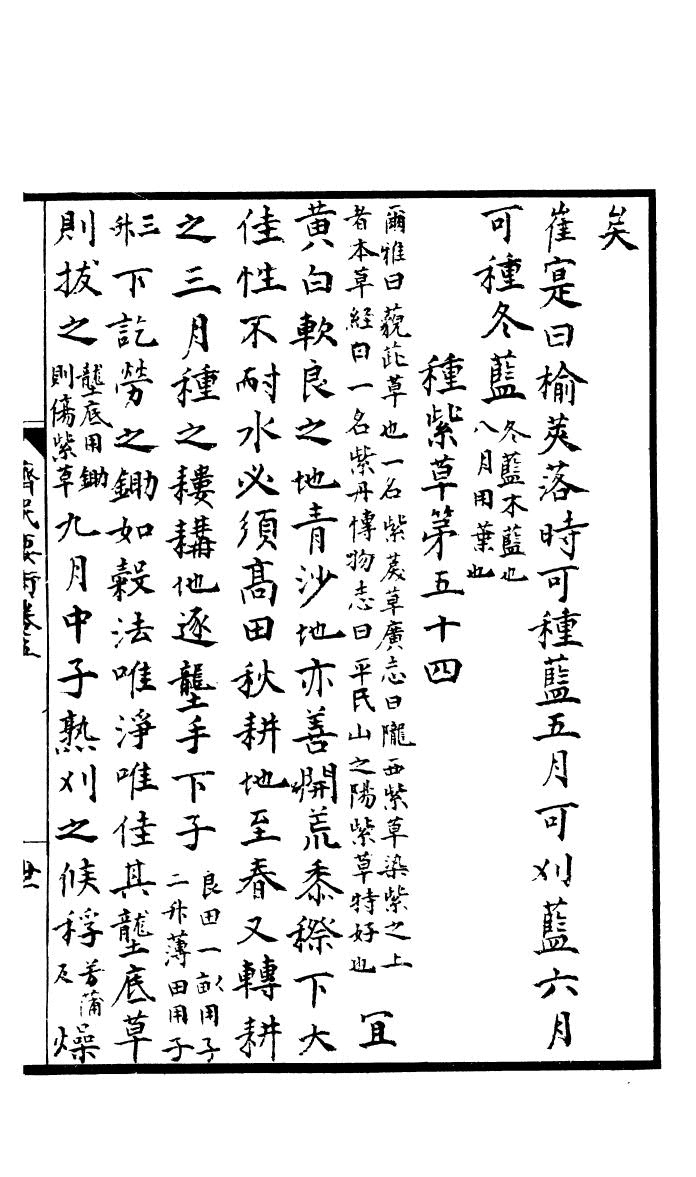 矣
崔寔曰榆莢落時可種藍五月可刈藍六月
可種冬藍冬藍木藍也八月用葉也
種紫草第五十四
爾雅曰藐茈草也一名紫䓞草廣志曰隴西紫草染紫之上
者本草經曰一名紫丹博物志曰平氏山之陽紫草特好也
宜
黃白軟良之地青沙地亦善開荒黍穄下大
佳性不耐水必須高田秋耕地至春又轉耕
之三月種之耬耩地逐壟手下子良田一畝用子二升薄田用子
三升下訖勞之鋤如穀法唯淨唯佳其壟底草
則拔之壟底用鋤則傷紫草九月中子熟刈之候稃芳蒲反燥
齊民要術卷五